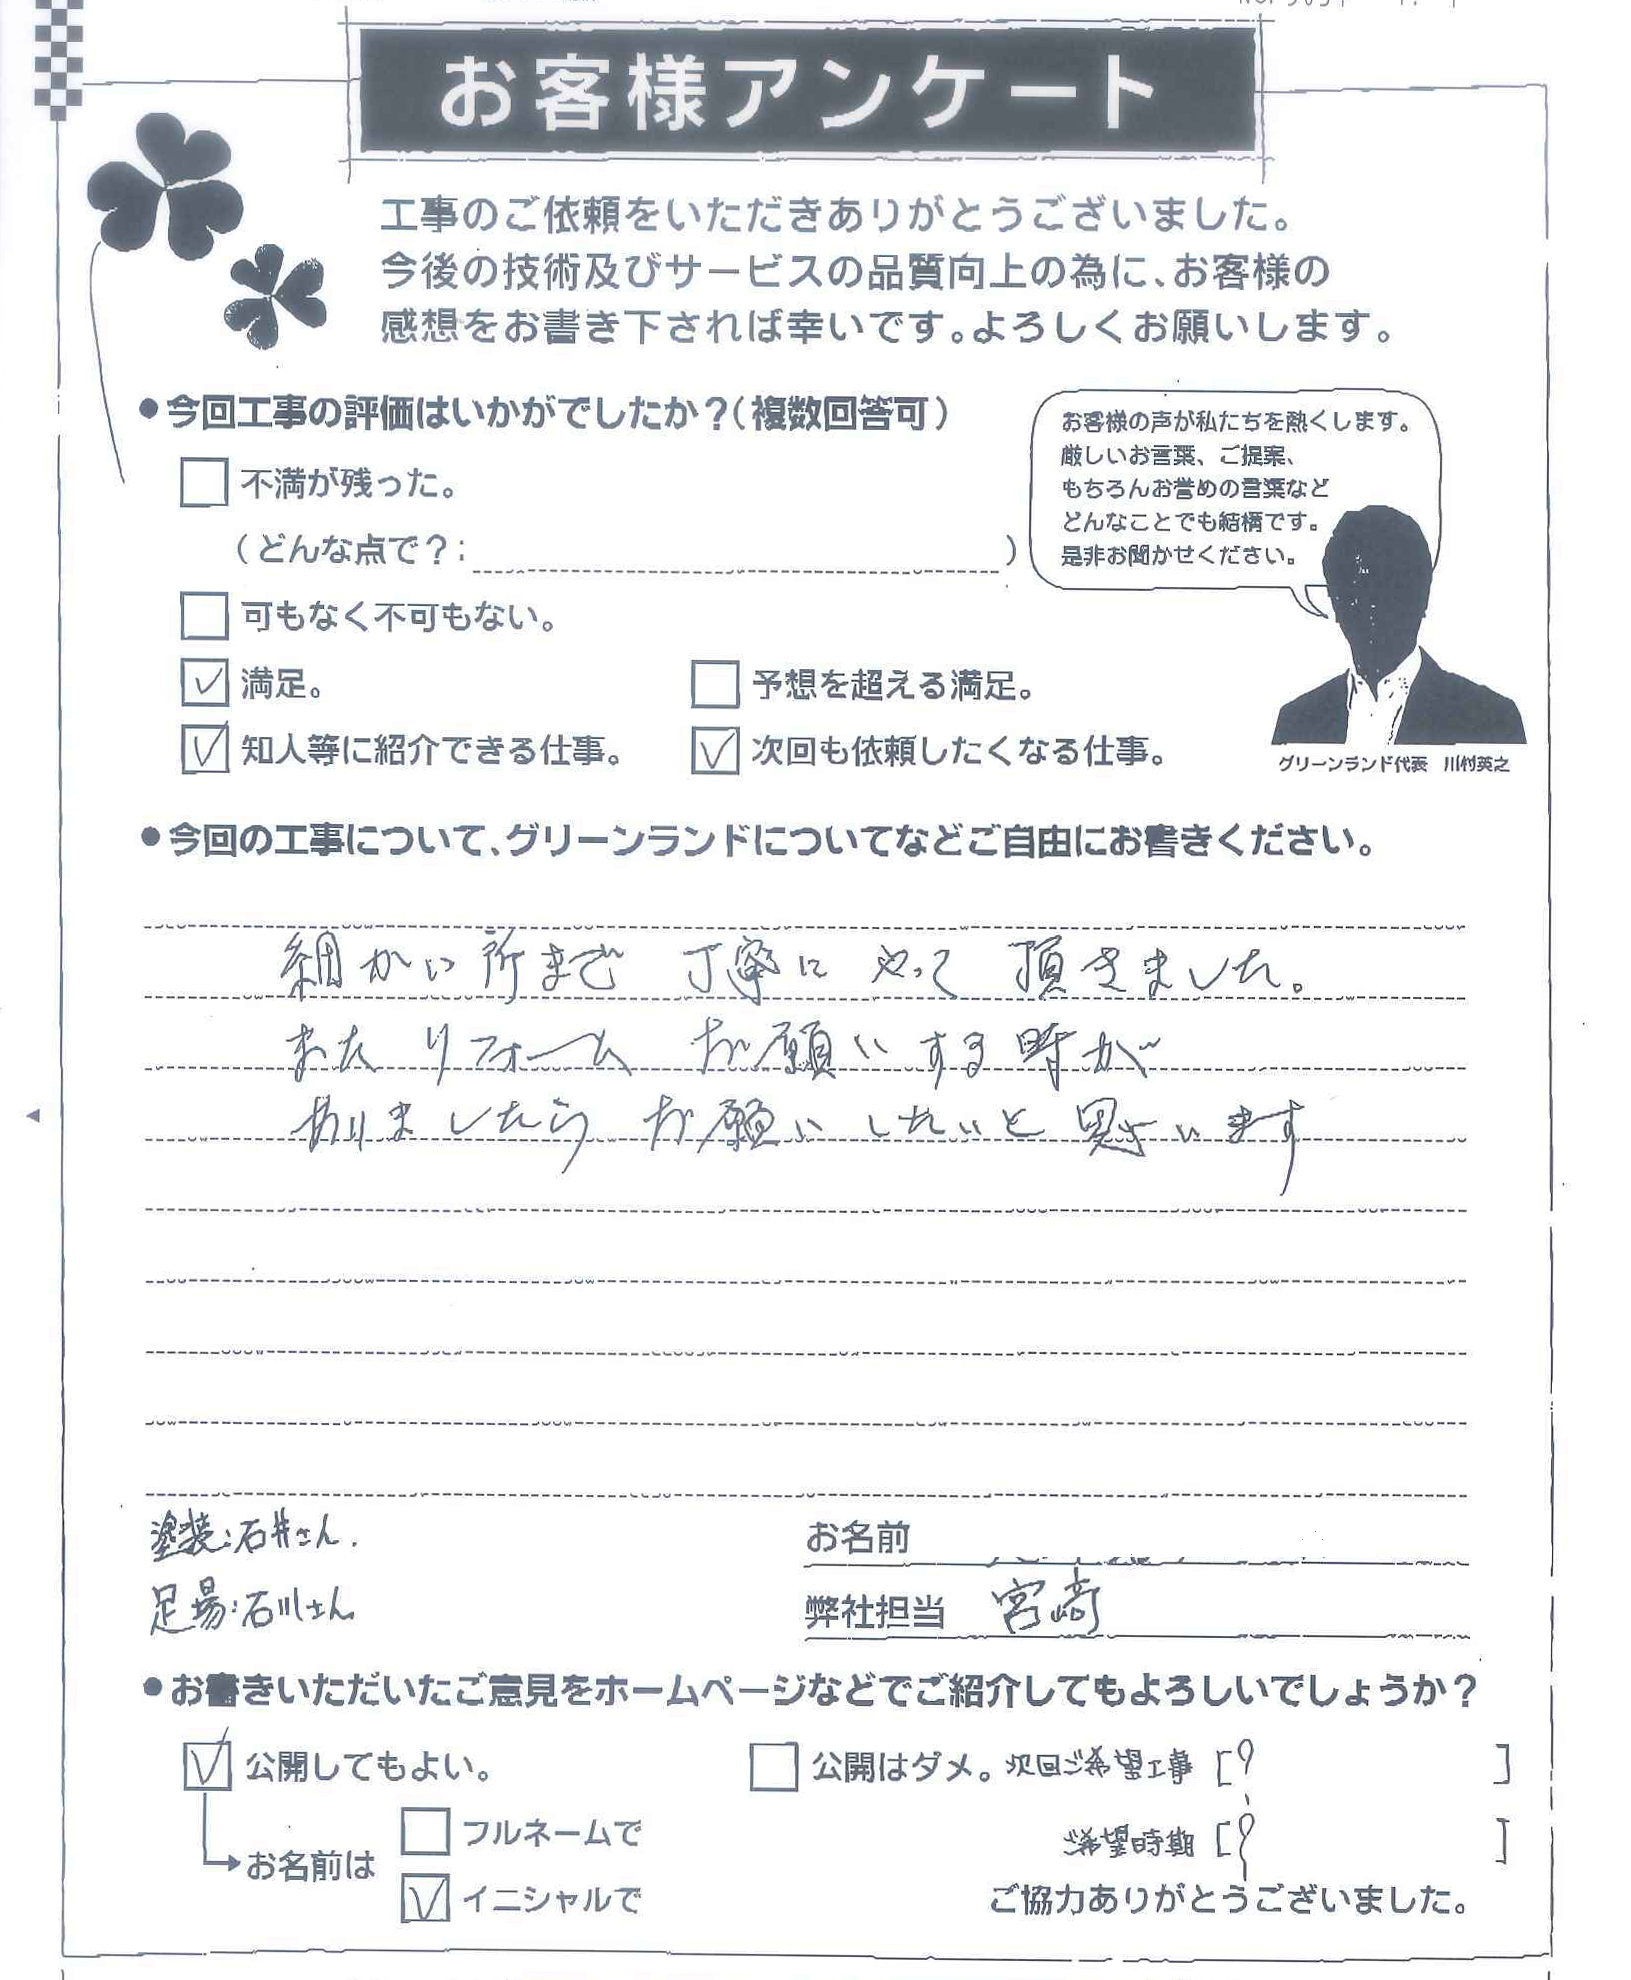 お客様アンケート
工事のご依頼をいただきありがとうございました。
今後の技術及びサービスの品質向上の為に、お客様の
感想をお書き下されば幸いです。よろしくお願いします。
●今回工事の評価はいかがでしたか?(複数回答可)
不満が残った。
(どんな点で?: )
可もなく不可もない。
満足。 予想を超える満足。
知人等に紹介できる仕事。 次回も依頼したくなる仕事。
お客様の声が私たちを熱くします。
厳しいお言葉、ご提案、
もちろんお誉めの言葉など
どんなことでも結構です。
是非お聞かせください。
グリーンランド代表 川村英之
●今回の工事について、グリーンランドについてなどご自由にお書きください。
細かい所まで 丁寧に やって 頂きました。
またリフォーム お願いする時が
ありましたら お願いしたいと思います
塗装:石井さん.
足場:石川さん
お名前
弊社担当 宮崎
●お書きいただいたご意見をホームページなどでご紹介してもよろしいでしょうか?
公開してもよい。 公開はダメ。 次回ご希望工事 [? ]
お名前は
フルネームで
ご希望時期 [? ]
イニシャルで
ご協力ありがとうございました。